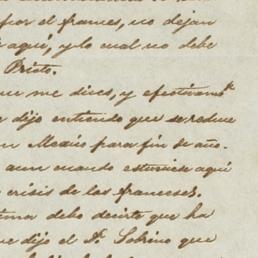 por el frances, no dejan
aquí, y lo cual no debe
Prieto.
me dices, y efectivamte
dijo entiendo que se reduce
Mexico para fin de año.
aun cuando estuviese aquí
crisis de los franceses.
debo decirte que ha
dijo el Sr. Sobrino que